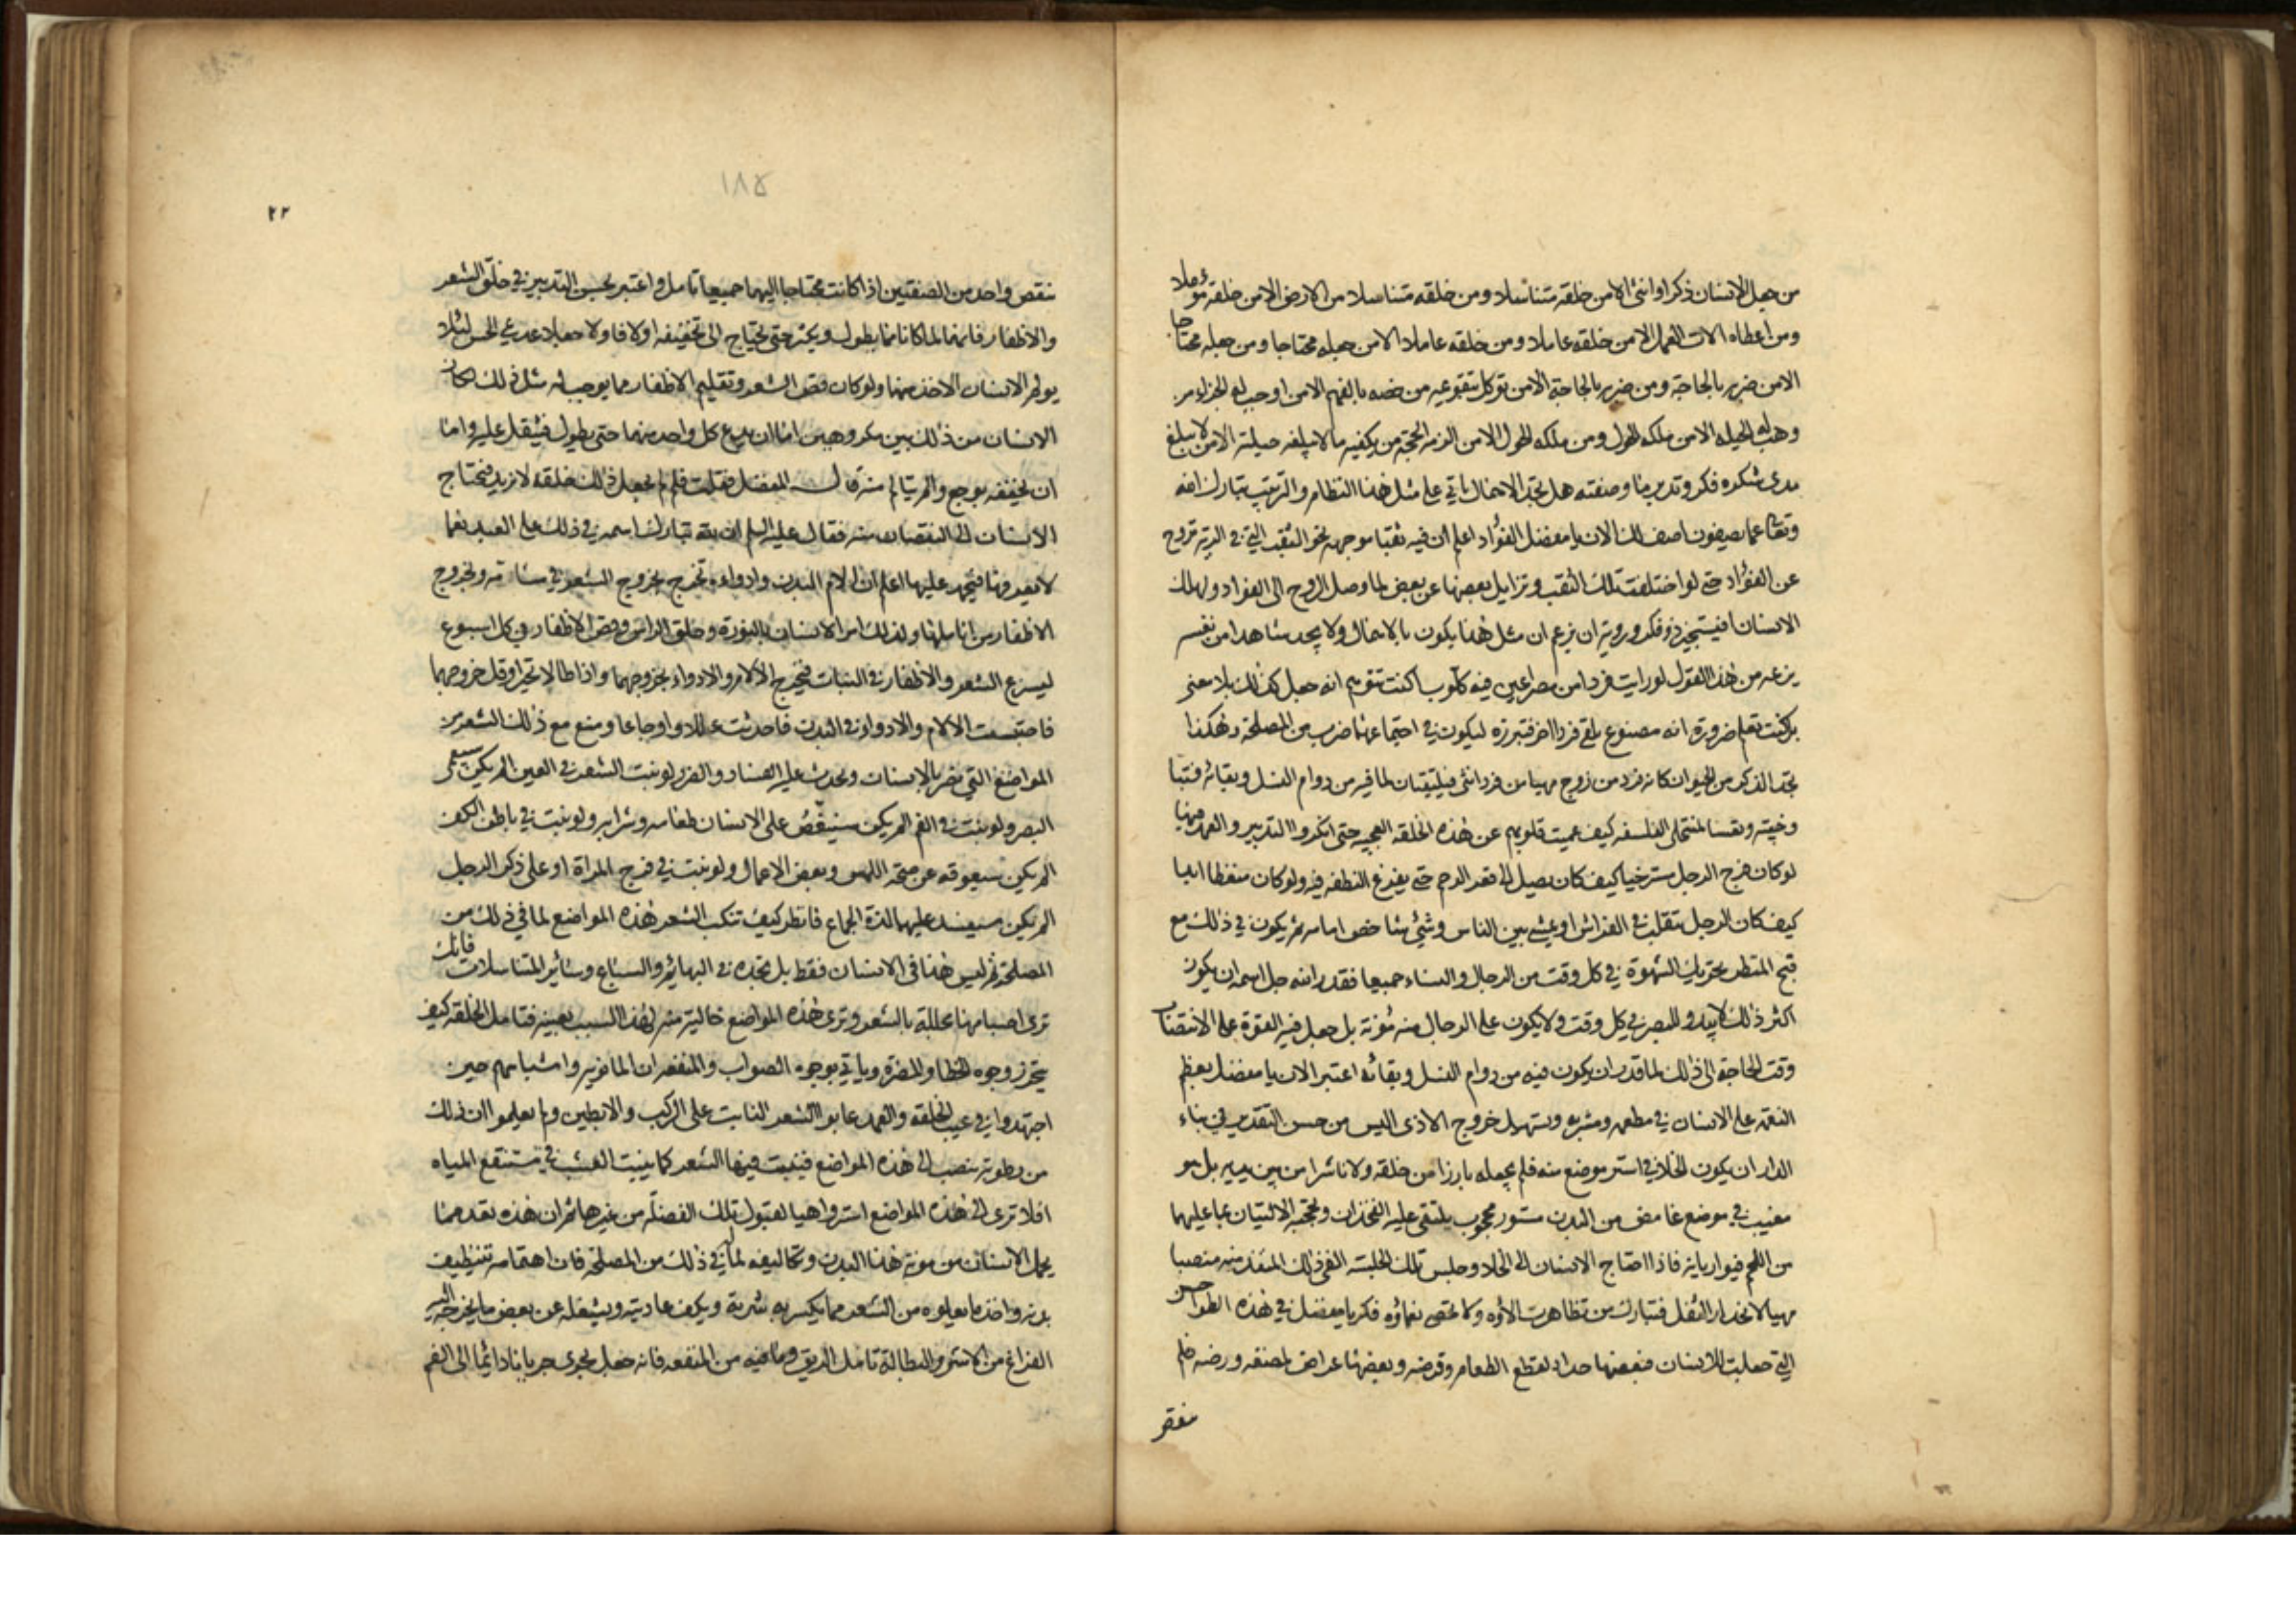 من جعل الانسان ذكرا وانثى الا من خلقه متناسلا ومن خلقه متناسلا من الارض الا من خلقه مؤملا
ومن اعطاه الات العمل الا من خلقه عاملا ومن خلقه عاملا الا من جعله محتاجا ومن جعله محتاجا
الا من ضربه بالحاجة ومن ضربه بالحاجة الا من توكل بتقويمه من خصه بالفهم الا من اوجب له الجزاء من
وهب له الحيلة الا من ملكه الحول ومن ملكه الحول الا من الزمه الحجة من يكفيه ما لا يبلغه حيلته الا من لا يبلغ
مدى شكره فكر وتدبر ما وصفته هل تجد الاهمال ياتي على مثل هذا النظام والترتيب تبارك الله
وتعا عما يصفون اصف لك الان يا مفضل الفؤاد اعلم ان فيه ثقبا موجهة نحو الثقب التي في الرية تروح
عن الفؤاد حتى لو اختلفت تلك الثقب وتزايل بعضها عن بعض لما وصل الروح الى الفؤاد ولهلك
الانسان افيستجيز ذو فكر وروية ان يزعم ان مثل هذا يكون بالاهمال ولا يجد شاهدا من نفسه
يزعه من هذا القول لو رايت فردا من مصراعين فيه كلوب اكنت تتوهم انه جعل كذلك بلا معنى
بل كنت تعلم ضرورة انه مصنوع يلقى فردا اخر فتبرزه ليكون في اجتماعهما ضرب من المصلحة وهكذا
تجد الذكر من الحيوان كانه فرد من زوج مهيا من فرد انثى فيلتقيان لما فيه من دوام النسل وبقائه فتبا
وخيبة وتعسا لمنتحلي الفلسفه كيف عميت قلوبهم عن هذه الخلقه العجيبه حتى انكروا التدبير والعمد فيها
لو كان فرج الرجل مسترخيا كيف كان يصل الى قعر الرحم حتى يفرغ النطفه فيه ولو كان منعظا ابدا
كيف كان الرجل يتقلب في الفراش او يمشي بين الناس وشيئ شاخص امامه ثم يكون في ذلك مع
قبح المنظر تحريك الشهوة في كل وقت من الرجال والنساء جميعا فقدر الله جل اسمه ان يكون
اكثر ذلك لا يبدو للبصر في كل وقت ولا يكون على الرجال منه مؤنة بل جعل فيه القوة على الانتصاب
وقت الحاجة الى ذلك لما قدر ان يكون فيه من دوام النسل وبقائه اعتبر الان يا مفضل بعظم
النعمة على الانسان في مطعمه ومشربه وتسهيل خروج الاذى اليس من حسن التقدير في بناء
الدار ان يكون الخلا في استر موضع منه فلم يجعله بارزا من خلفه ولا ناشرا من بين يديه بل هو
مغيب في موضع غامض من البدن مستور محجوب يلتقي عليه الفخذان وتحجبه الاليتان بما عليهما
من اللحم فيواريانه فاذا احتاج الانسان الى الخلا وجلس تلك الجلسة الفى ذلك المنفذ منه منصبا
مهيا لانحدار الثفل فتبارك من تظاهرت الاؤه ولا تحصى نعماؤه فكر يا مفضل في هذه الطواحن
التي جعلت للانسان فبعضها حداد لقطع الطعام وقرضه وبعضها عراض لمضغه ورضه فلم
ينقص
١٨٥
٢٢
ينقص واحد من الصنفتين اذا كانت محتاجا اليهما جميعا تامل واعتبر بحسن التدبير في خلق الشعر
والاظفار فانهما لما كانا مما يطول ويكثر حتى يحتاج الى تخفيفه اولا فاولا جعلا عديمي الحس لئلا
يولم الانسان الاخذ منهما ولو كان قص الشعر وتقليم الاظفار مما يوجد له مثل ذلك لكان
الانسان من ذلك بين مكروهين اما ان يدع كل واحد منهما حتى يطول فيثقل عليه واما
ان يخففه بوجع والم يتالم منه قال المفضل فقلت فلم لم يجعل ذلك خلقة لا تزيد فيحتاج
الانسان الى النقصان منه فقال عليه السلم ان لله تبارك اسمه في ذلك على العبد نعما
لا يعرفها فيحمد عليها اعلم ان الام البدن وادواءه تخرج بخروج الشعر في مسامه وبخروج
الاظفار من اناملها ولذلك امر الانسان بالنورة وحلق الراس وقص الاظفار في كل اسبوع
ليسرع الشعر والاظفار في النبات فيخرج الالام والادواء بخروجهما واذا طالا تحيرا وقل خروجهما
فاحتبست الالام والادواء في البدن فاحدثت عللا واوجاعا ومنع مع ذلك الشعر من
المواضع التي تضر بالانسان وتحدث عليه الفساد والضر لو نبت الشعر في العين الم يكن سيعمى
البصر ولو نبت في الفم الم يكن سينغص على الانسان طعامه وشرابه ولو نبت في باطن الكف
الم يكن سيعوقه عن صحة اللمس وبعض الاعمال ولو نبت في فرج المراة او على ذكر الرجل
الم يكن سيفسد عليهما لذة الجماع فانظر كيف تنكب الشعر هذه المواضع لما في ذلك من
المصلحة ثم ليس هذا في الانسان فقط بل تجده في البهائم والسباع وسائر المتناسلات فانك
ترى اجسامها مجللة بالشعر وترى هذه المواضع خالية منه لهذا السبب بعينه فتامل الخلقه كيف
تتحرز وجوه الخطا والمضرة وياتي بوجوه الصواب والمنفعه ان المانويه واشباههم حين
اجتهدوا في عيب الخلقه والعمد عابوا الشعر النابت على الركب والابطين ولم يعلموا ان ذلك
من رطوبة تنصب الى هذه المواضع فينبت فيها الشعر كما ينبت العشب في مستنقع المياه
افلا ترى الى هذه المواضع استر واهيا لقبول تلك الفضلة من غيرها ثم ان هذه تعد مما
يحمل الانسان من مونة هذا البدن وتكاليفه لما له في ذلك من المصلحة فان اهتمامه بتنظيف
بدنه واخذ ما يعلوه من الشعر مما يكسر به شرته ويكف عاديته ويشغله عن بعض ما يخرجه اليه
الفراغ من الاشر والبطالة تامل الريق وما فيه من المنفعه فانه جعل يجرى جريانا دائما الى الفم